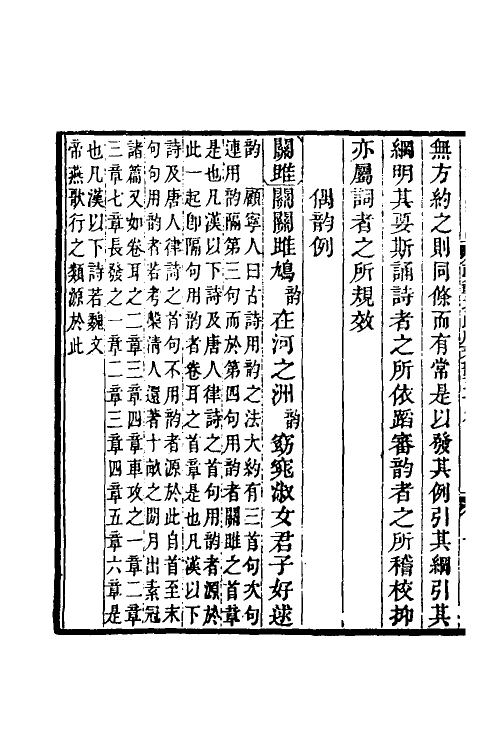 無方約之則同條而有常是以發其例引其綱引其
綱明其要斯誦詩者之所依蹈審韵者之所稽校抑
亦屬詞者之所規效
偶韵例
關雎 關關雎鳩韵 在河之洲韵 窈窕淑女君子好逑
韵 顧寧人曰古詩用韵之法大約有三首句次句
連用韵隔第三句而於第四句用韵者關雎之首章
是也凡漢以下詩及唐人律詩之首句用韵者源於
此一起卽隔句用韵者卷耳之首章是也凡漢以下
詩及唐人律詩之首句不用韵者源於此自首至末
句句用韵者若考槃淸人還著十畝之閒月出素冠
諸篇又如卷耳之二章三章四章車攻之一章二章
三章七章長發之一章二章三章四章五章六章是
也凡漢以下詩若魏文
帝燕歌行之類源於此